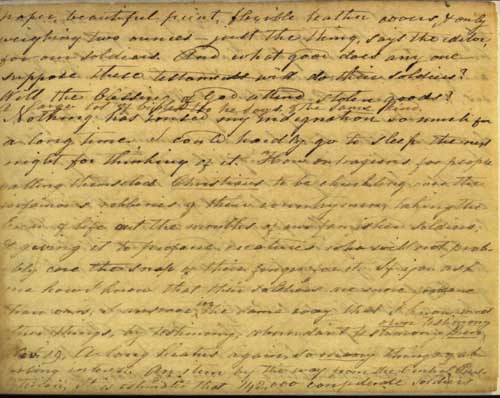 paper, beautiful print, flexible leather covers, & only
weighing two ounces — just the thing, says the editor,
for our soldiers. And what good does any one
suppose these testaments will do their soldiers?
Will the blessing of God attend stolen goods?
A large lot of bibles he says, of the same kind.
Nothing has roused my indignation so much for
a long time. I could hardly go to sleep the next
night for thinking of it. How outrageous for people
calling themselves Christians to be chuckling over the
robberies of their countrymen, taking the
bread of life out the mouths of our famished soldiers,
& giving it to profane creatures who will not prob-
bly care the snap of their finger for it. If you ask
me how I know that their soldiers are more profane
than ours, I answer, in the same way that I know most
own testimony
true things, by testimony, abundant testimony
Nov. 19. A long against so many things
An item by the way from the Central Pres-
byterian, it is estimated that 140,000 confederate soldiers